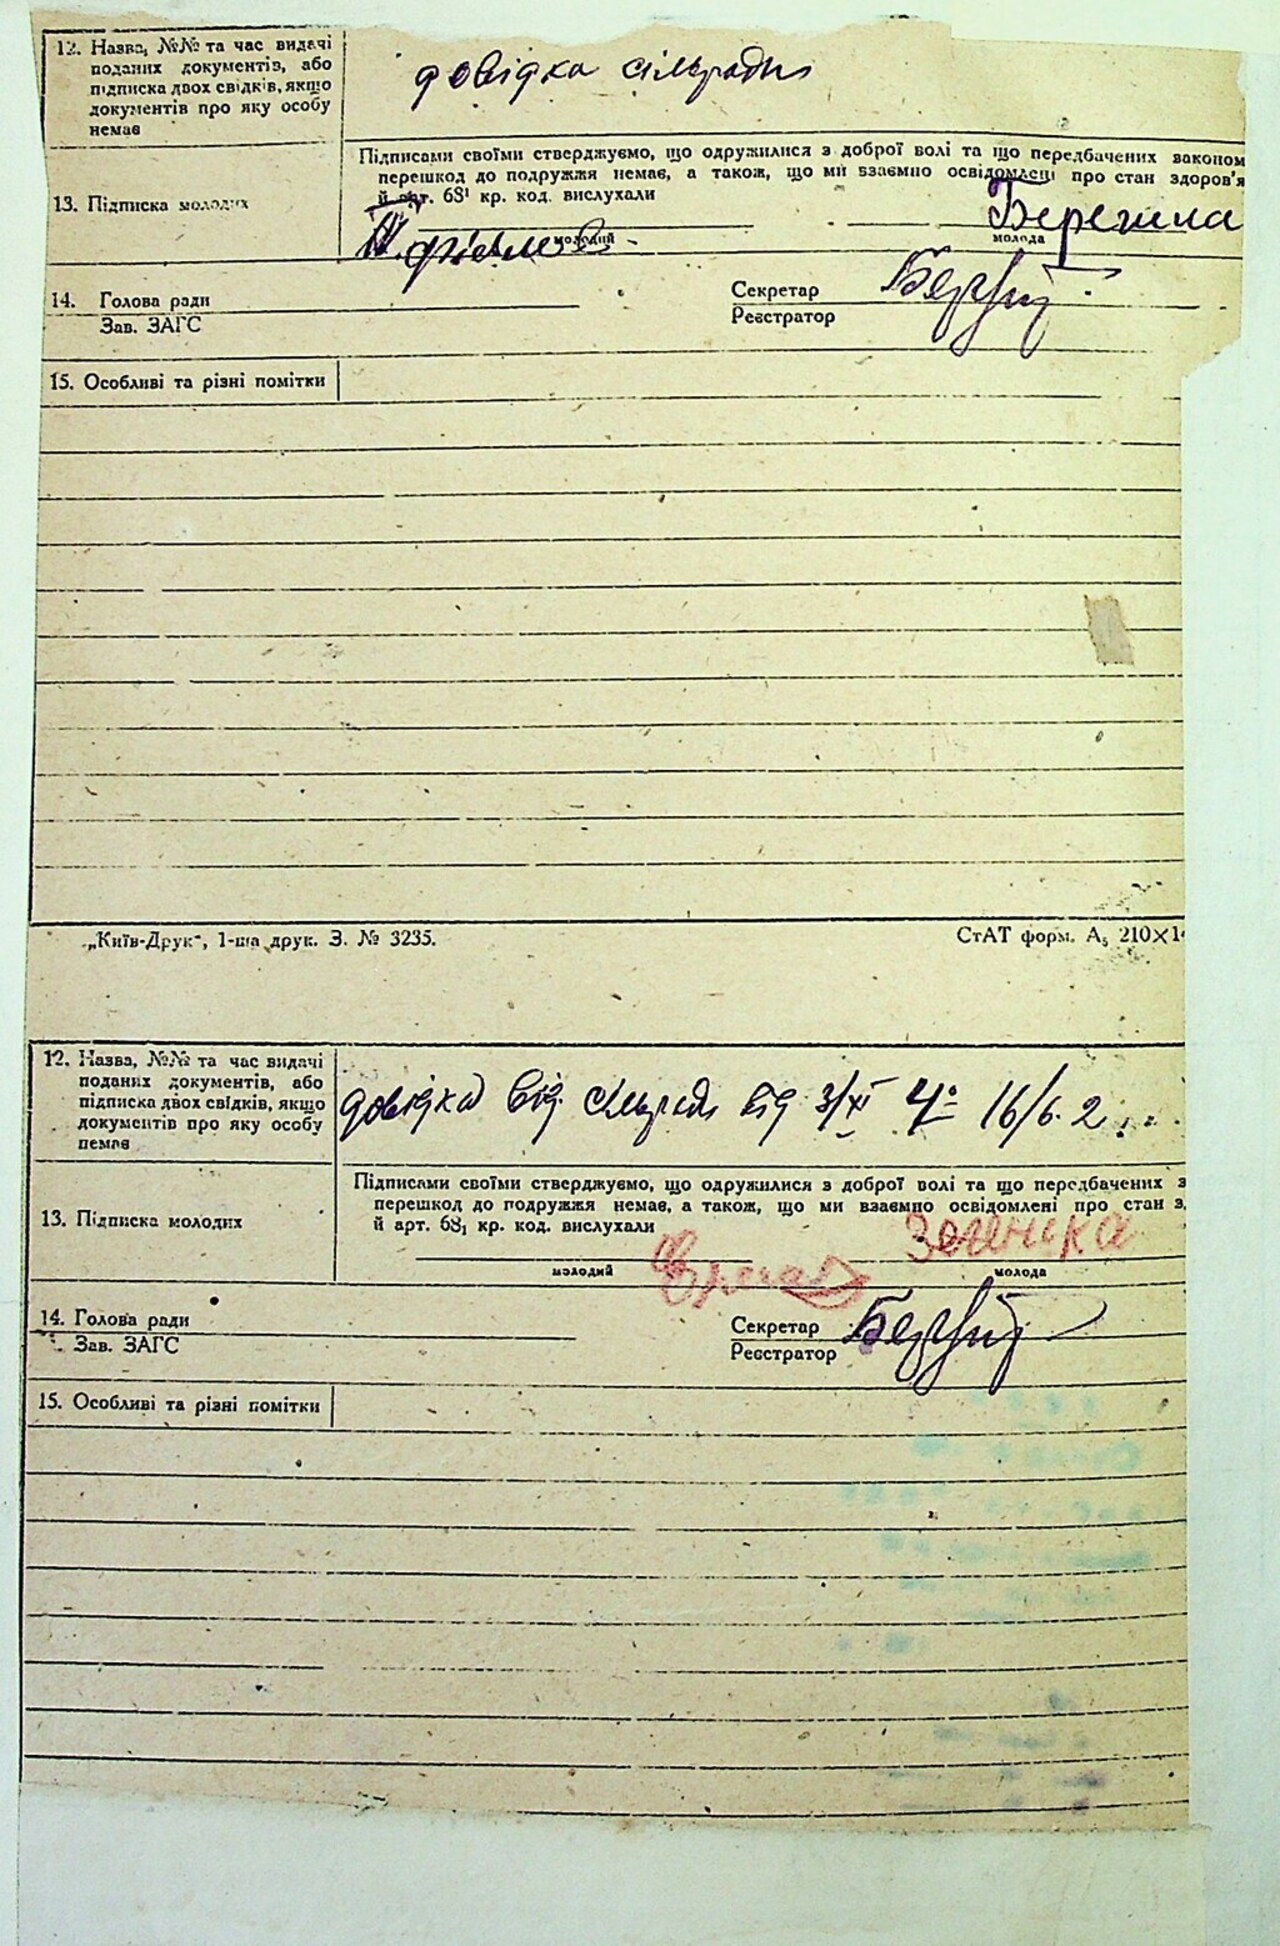 12. Назва, №№ та час видачі
поданих документів, або
підписка двох свідків, якщо
документів про яку особу
немає
довідка сільради
Підписами своїми стверджуємо, що одружилися з доброї волі та що передбачених законом
перешкод до подружжя немає, а також, що ми взаємно освідомлені про стан здоров'я
й арт. 68¹ кр. код. вислухали
13. Підписка молодих
молодий
молода
14. Голова ради
Зав. ЗАГС
Секретар
Реєстратор
15. Особливі та різні помітки
„Київ-Друк“, 1-ша друк. З. № 3235.
СтАТ форм. А₅ 210×1
12. Назва, №№ та час видачі
поданих документів, або
підписка двох свідків, якщо
документів про яку особу
немає
довідка від сільради від 3/XI 16/6.2
Підписами своїми стверджуємо, що одружилися з доброї волі та що передбачених з
перешкод до подружжя немає, а також, що ми взаємно освідомлені про стан з
й арт. 68₁ кр. код. вислухали
13. Підписка молодих
молодий
молода
14. Голова ради
Зав. ЗАГС
Секретар
Реєстратор
15. Особливі та різні помітки